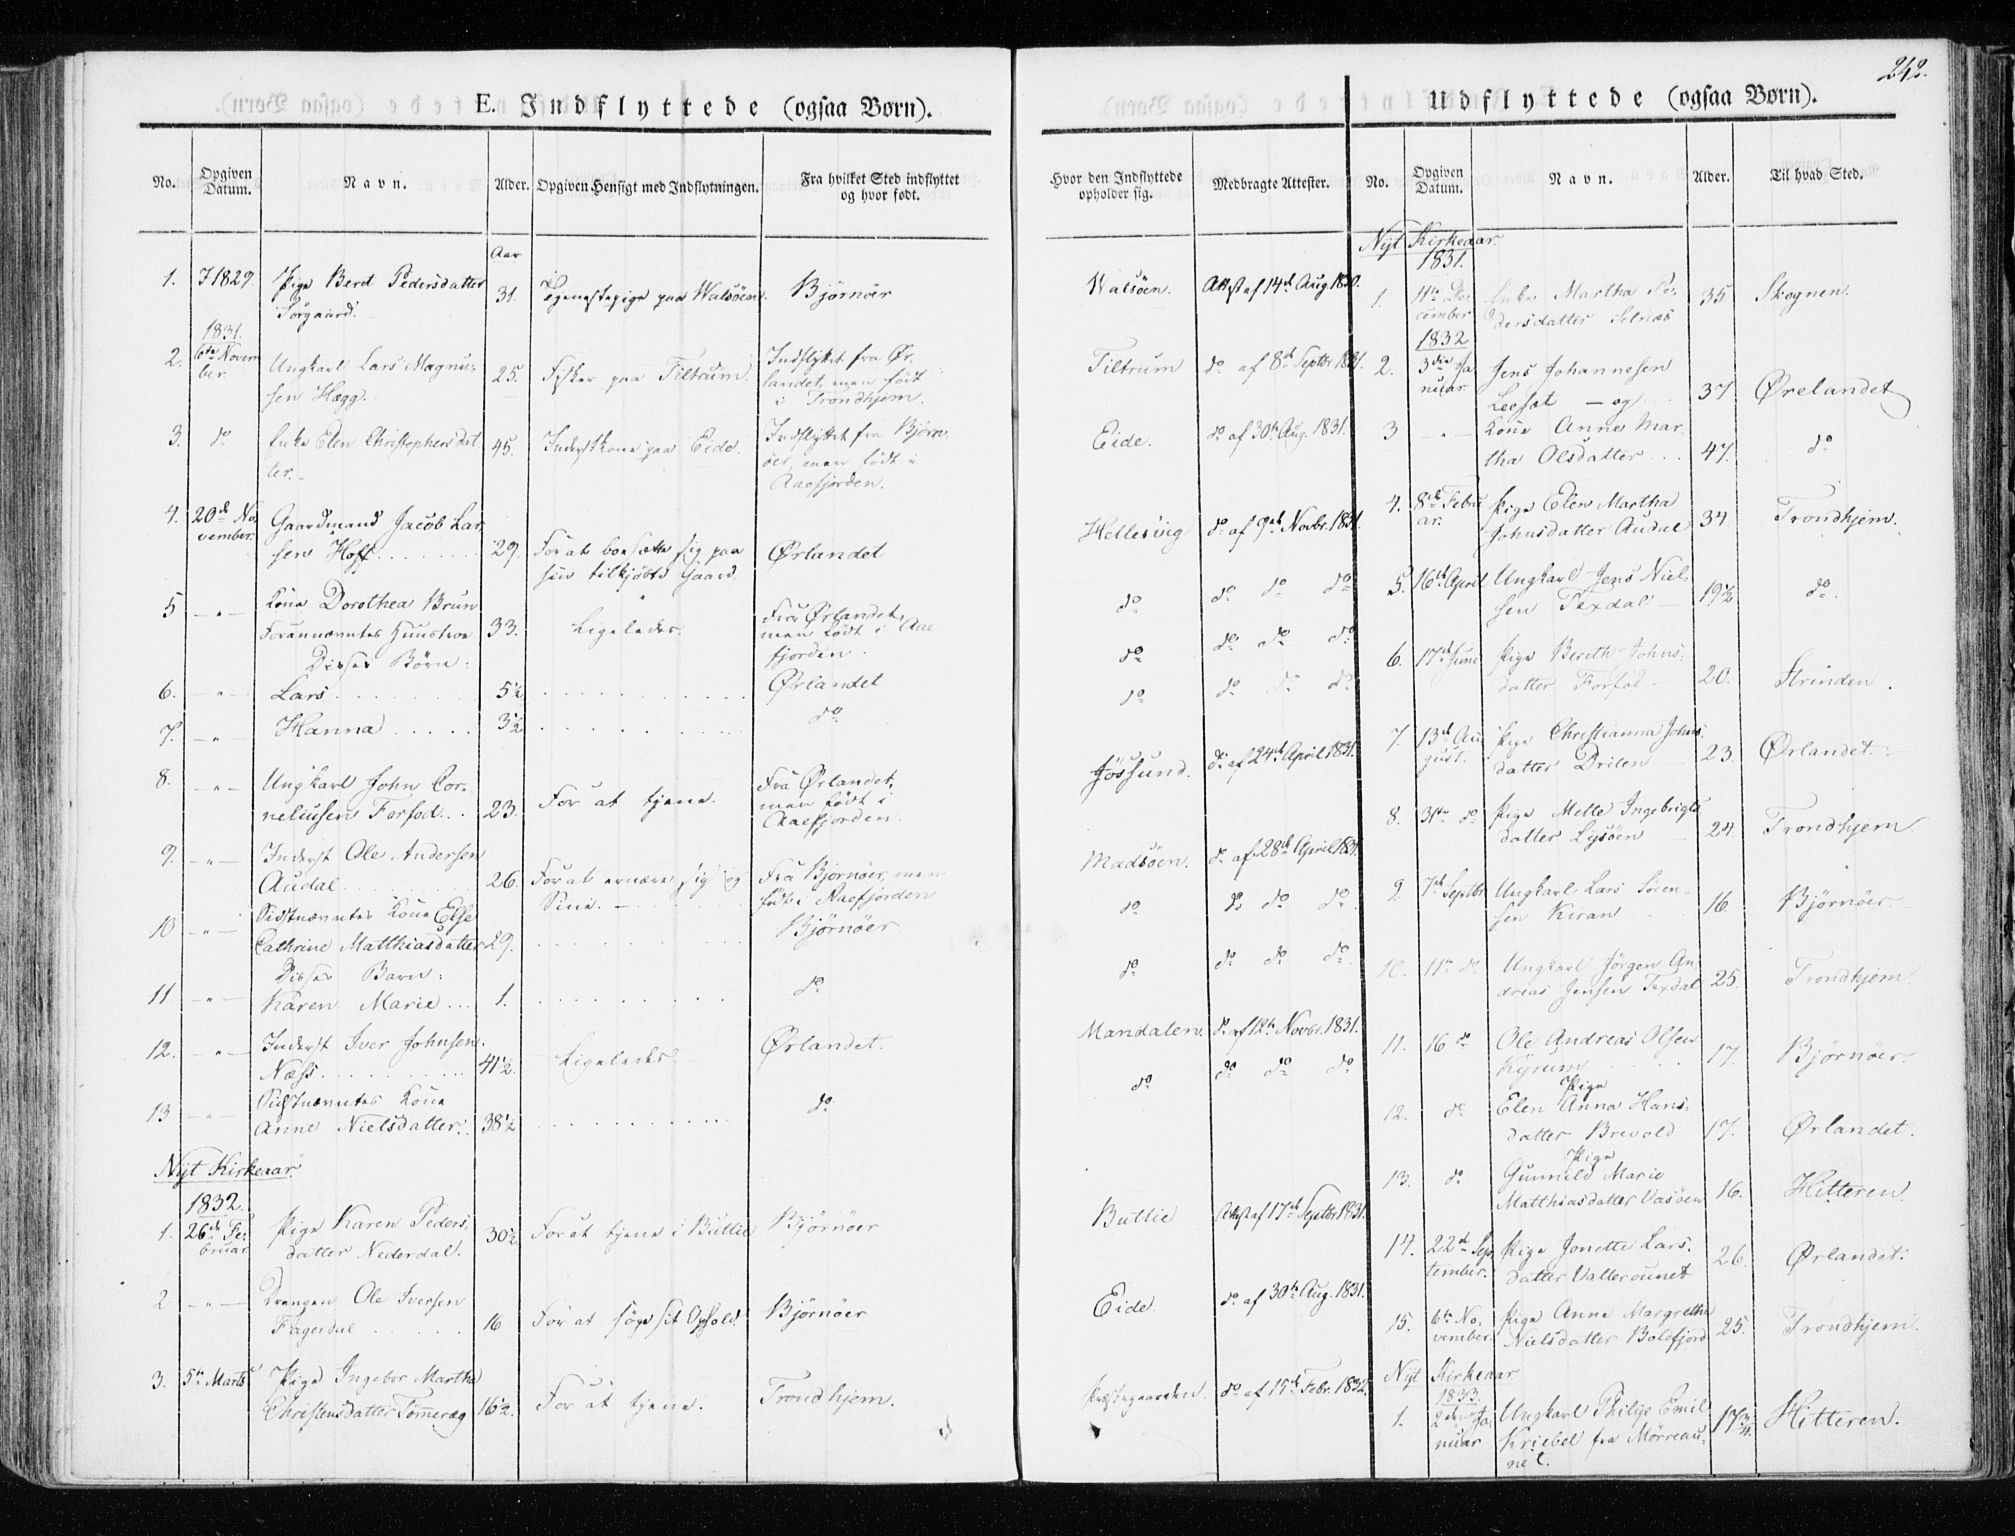 242.
E. Indflyttede (ogsaa Børn).
No.
Opgiven Datum.
Navn.
Alder.
Opgiven Hensigt med Indflytningen.
Fra hvilket Sted indflyttet og hvor født.
Hvor den Indflyttede opholder sig.
Medbragte Attester.
Aar
1. 1829. Pige Beret Pedersdatter 31. Tjenestepige paa Walsöen. Bjørnöer Walsöen. Attest af 14de Aug. 1830.
Sörgaard.
1831.
2. 6te Novem Ungkarl Lars Magnu- 25. Fisker paa Tiltrum. Indflyttet fra Ør- Tiltrum do af 8de Septbr 1831.
ber. sen Hegg. landet, men født
i Trondhjem.
3. do Enke Elen Christophersdat 45. Inderstkone paa Eide. Indflyttet fra Bjørn- Eide. do af 30te Aug. 1831.
ter. öer, men født i
Aaefjorden.
4. 20de No- Gaardmand Jacob Lar- Hellesvig do af 9de Novbr. 1831.
vember. sen Hoff 29. For at boesætte sig paa Ørlandet
sin tilkjöbte Gaard.
5 -"- Kone Dorothea Brun Fra Ørlandet, do do do do
Forannævntes Huustroe 33. Ligeledes. men født i Aae
Disses Börn: fjorden.
6. -"- Lars 5½ Ørlandet do do do do
7. -"- Hanna 3½ do do do do do
8. -"- Ungkarl John Cor- Fra Ørlandet, Jössund. do af 24de April 1831.
neliusen Forfod. 23. For at tjene. men født i
Aaefjorden.
9. -"- Inderst Ole Andersen Madsöen. do af 28de April 1831.
Audal 26. For at ernære sig og Fra Bjørnöer, men
Sine. født i Aaefjorden
10 -"- Sidstnævntes Kone Else Bjørnöer do do do do
Cathrine Matthiasdatter 29.
Disses Barn:
11. -"- Karen Marie 1. do do do do do
12. -"- Inderst Iver Johnsen Ørlandet. Mandalen. do af 12te Novbr. 1831.
Næss 41½. Ligeledes
13 -"- Sidstnævntes Kone do do do do do
Anne Nielsdatter. 38½
Nyt Kirkeaar.
1832.
1. 26de Fe- Pige Karen Peders- 30½ For at tjene i Buttie Bjørnöer Buttie Attest af 17de Septbr 1831.
bruar datter Nederdal.
2 -"- Drengen Ole Iversen Bjørnöer Eide. do af 30te Aug. 1831.
Fagerdal 16 For at söge sit Ophold.
3. 5te Marts Pige Ingebor Martha Trondhjem. Præstegaarden. do af 15de Febr. 1832.
Christensdatter Tömeræg 16½. For at tjene.
Udflyttede (ogsaa Børn).
No.
Opgiven Datum.
Navn.
Alder.
Til hvad Sted.
Nyt Kirkeaar.
1831.
1. 11te De- Enke Martha Pe- 35 Skognen.
cember dersdatter Selnæs
1832
2. 3die Ja- Jens Johannesen
nuar. Leesat - og 37 Ørelandet
3 -"- Kone Anne Mar-
tha Olsdatter 47. do
4. 8de Febru Pige Elen Martha
ar. Johnsdatter Audal 34. Trondhjem.
5. 16de April Ungkarl Jens Niel-
sen Texdal 19½ do.
6. 17de Juni Pige Bereth Johns-
datter Forfod 20. Strinden.
7. 13de Au- Pige Christianna Johns-
gust. datter Drilen 23. Ørlandet.
8. 31te do Pige Mette Ingebrigts
datter Lysöen 24. Trondhjem.
9. 7de Septbr Ungkarl Lars Sören-
sen Kiran 16. Bjørnöer.
10. 11te do Ungkarl Jörgen An-
dreas Jensen Texdal 25. Trondhjem.
11. 16 do Ole Andreas Olsen
Kyrum 17. Bjørnöer.
Pige
12. do Elen Anna Hans-
datter Brevold 17. Ørlandet.
Pige
13. do Gunnild Marie
Matthiasdatter Vasöen 16. Hitteren.
14. 22de Sep- Pige Jonette Lars-
tember. datter Vallersunet 26. Ørlandet.
15. 6te No- Pige Anne Margrethe
vember. Nielsdatter Bolefjord 25. Trondhjem.
Nyt Kirkeaar
1833.
1. 2den Ja- Ungkarl Philip Emil 17¾. Hitteren.
nuar Kriebel fra Mørreau-
net.